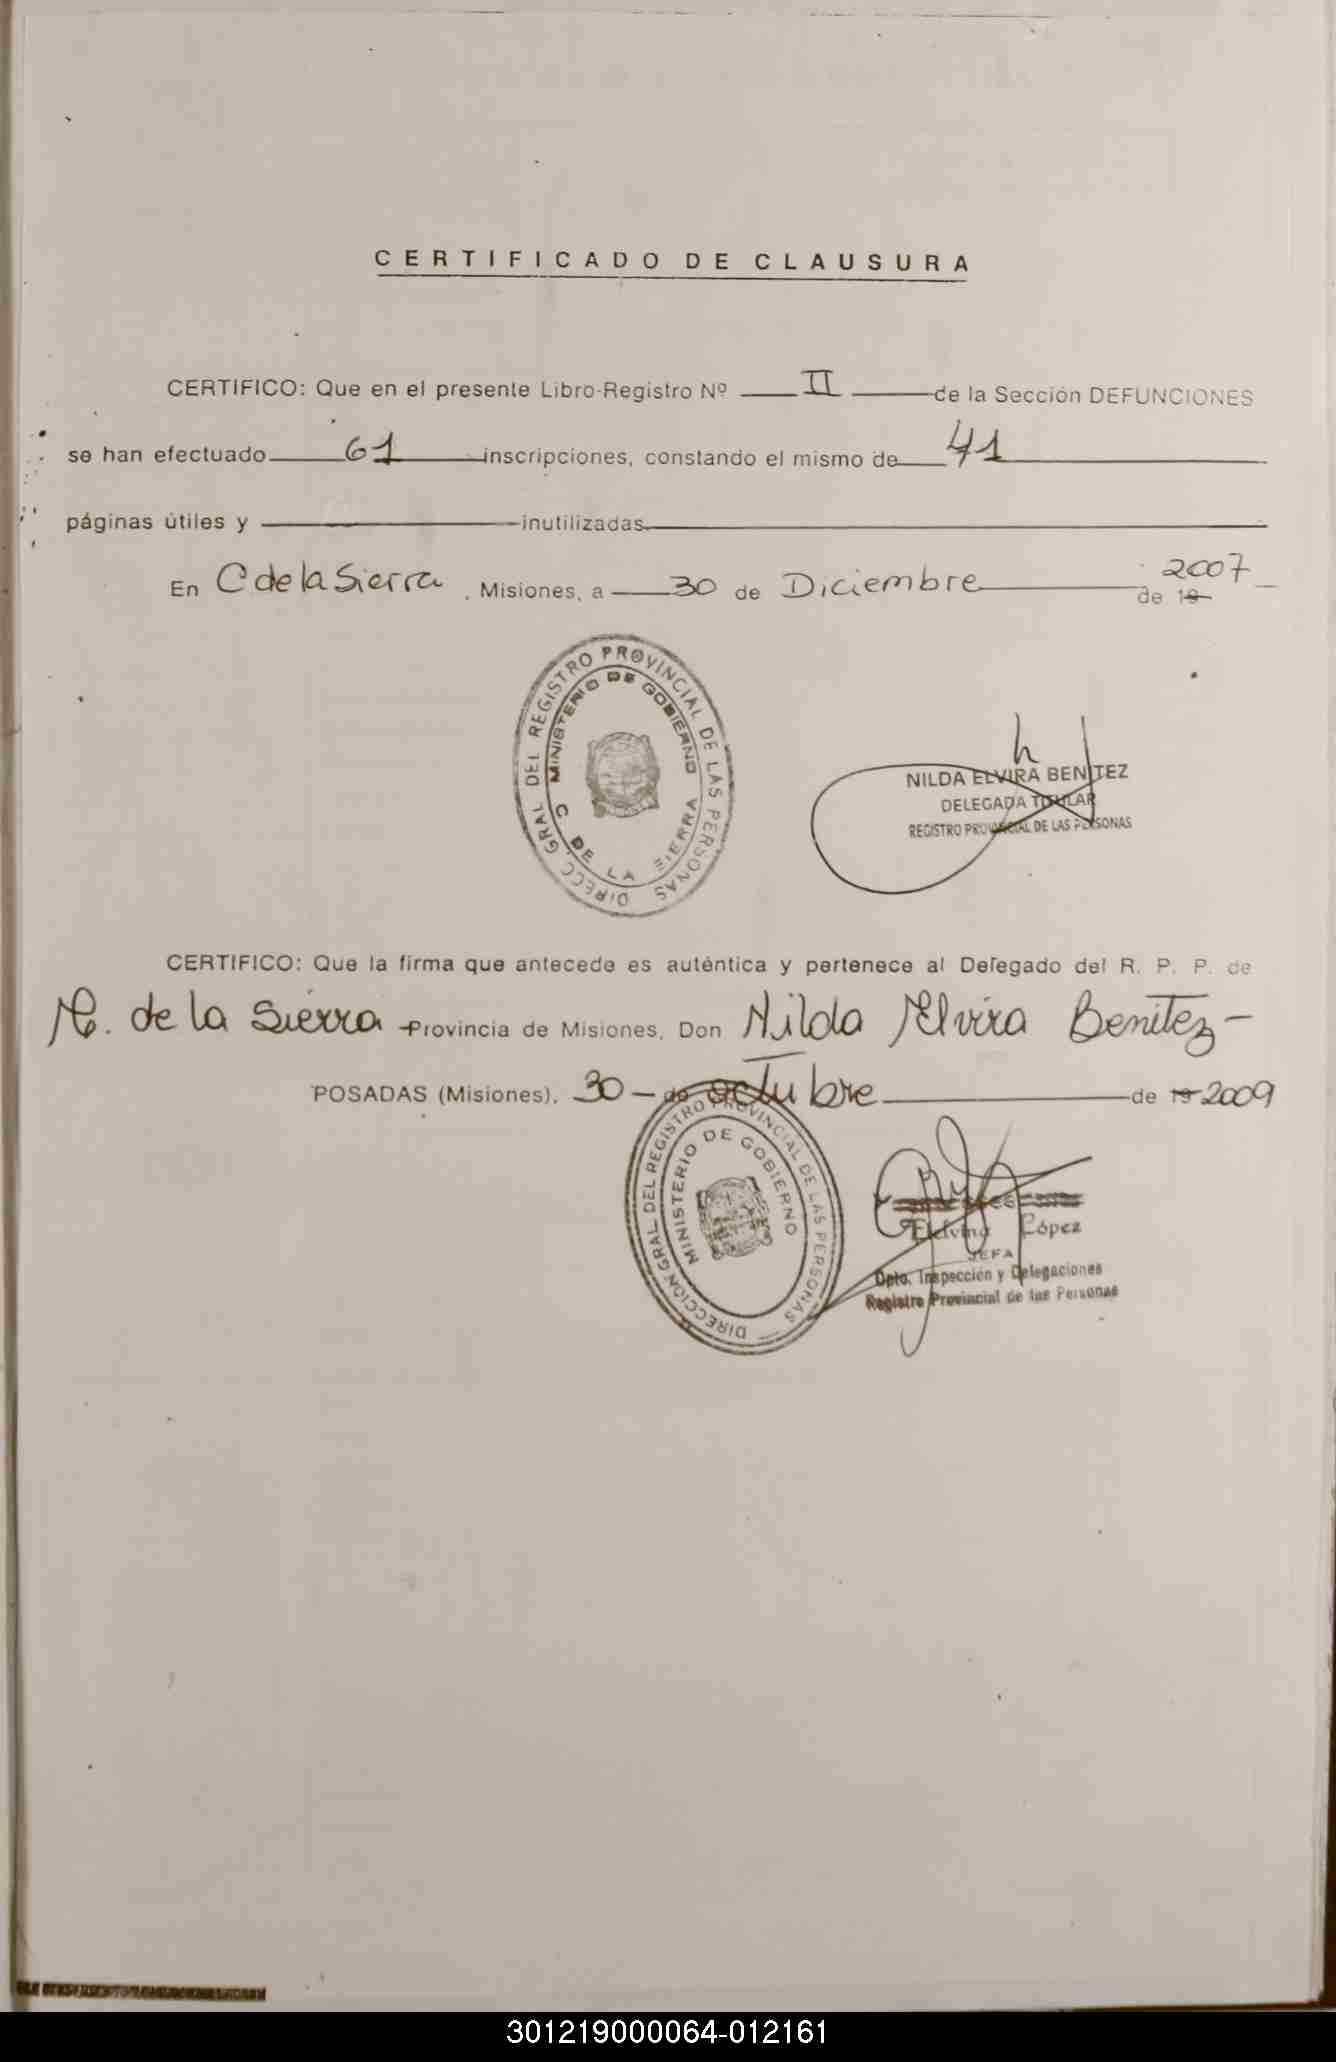 CERTIFICADO DE CLAUSURA
CERTIFICO: Que en el presente Libro-Registro Nº II de la Sección DEFUNCIONES
se han efectuado 61 inscripciones, constando el mismo de 41
páginas útiles y inutilizadas
En C de la Sierra, Misiones, a 30 de Diciembre de 19 2007
DIRECC GRAL DEL REGISTRO PROVINCIAL DE LAS PERSONAS
MINISTERIO DE GOBIERNO
C DE LA SIERRA
NILDA ELVIRA BENITEZ
DELEGADA TITULAR
REGISTRO PROVINCIAL DE LAS PERSONAS
CERTIFICO: Que la firma que antecede es auténtica y pertenece al Delegado del R. P. P. de
C. de la Sierra Provincia de Misiones, Don Nilda Elvira Benitez-
POSADAS (Misiones), 30 - de octubre de 19 2009
DIRECCION GRAL DEL REGISTRO PROVINCIAL DE LAS PERSONAS
MINISTERIO DE GOBIERNO
López
JEFA
Dpto. Inspección y Delegaciones
Registro Provincial de las Personas
301219000064-012161